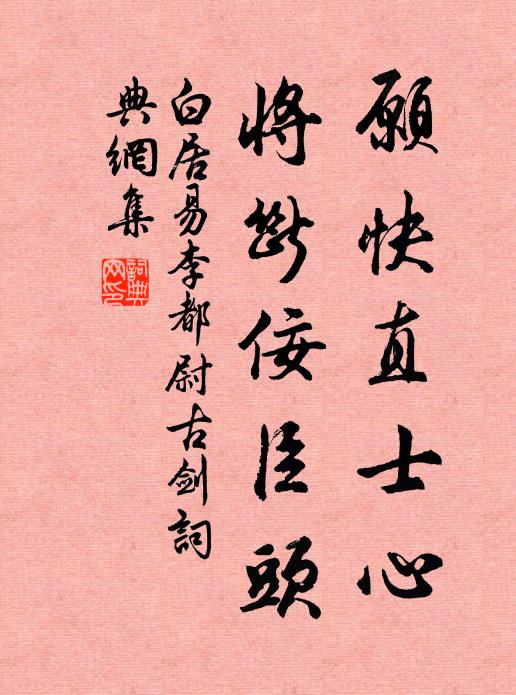 願快直士心
將斷佞臣頭
白居易李都尉古劍詞
典網集
詞典
网印